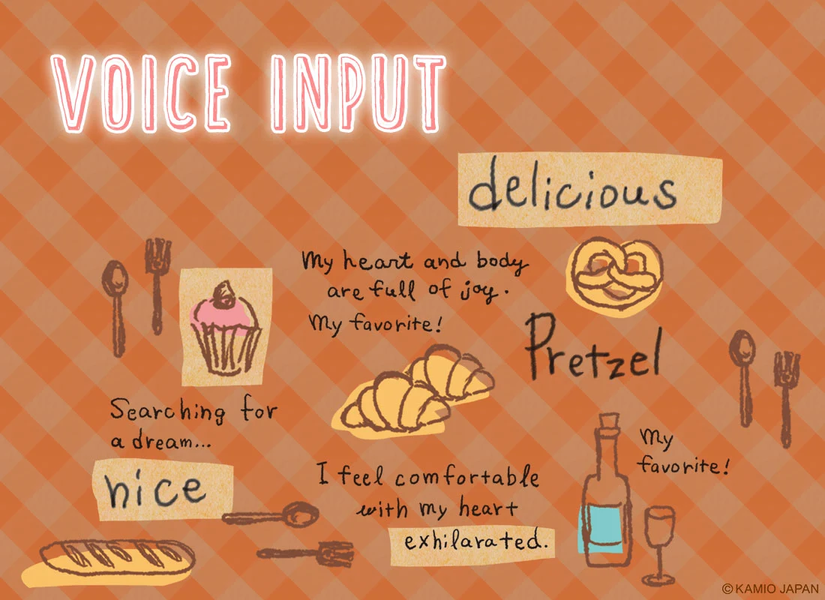 VOICE INPUT
delicious
My heart and body
are full of joy.
My favorite!
Pretzel
Searching for
a dream...
nice
I feel comfortable
with my heart
exhilarated.
My
favorite!
©KAMIO JAPAN